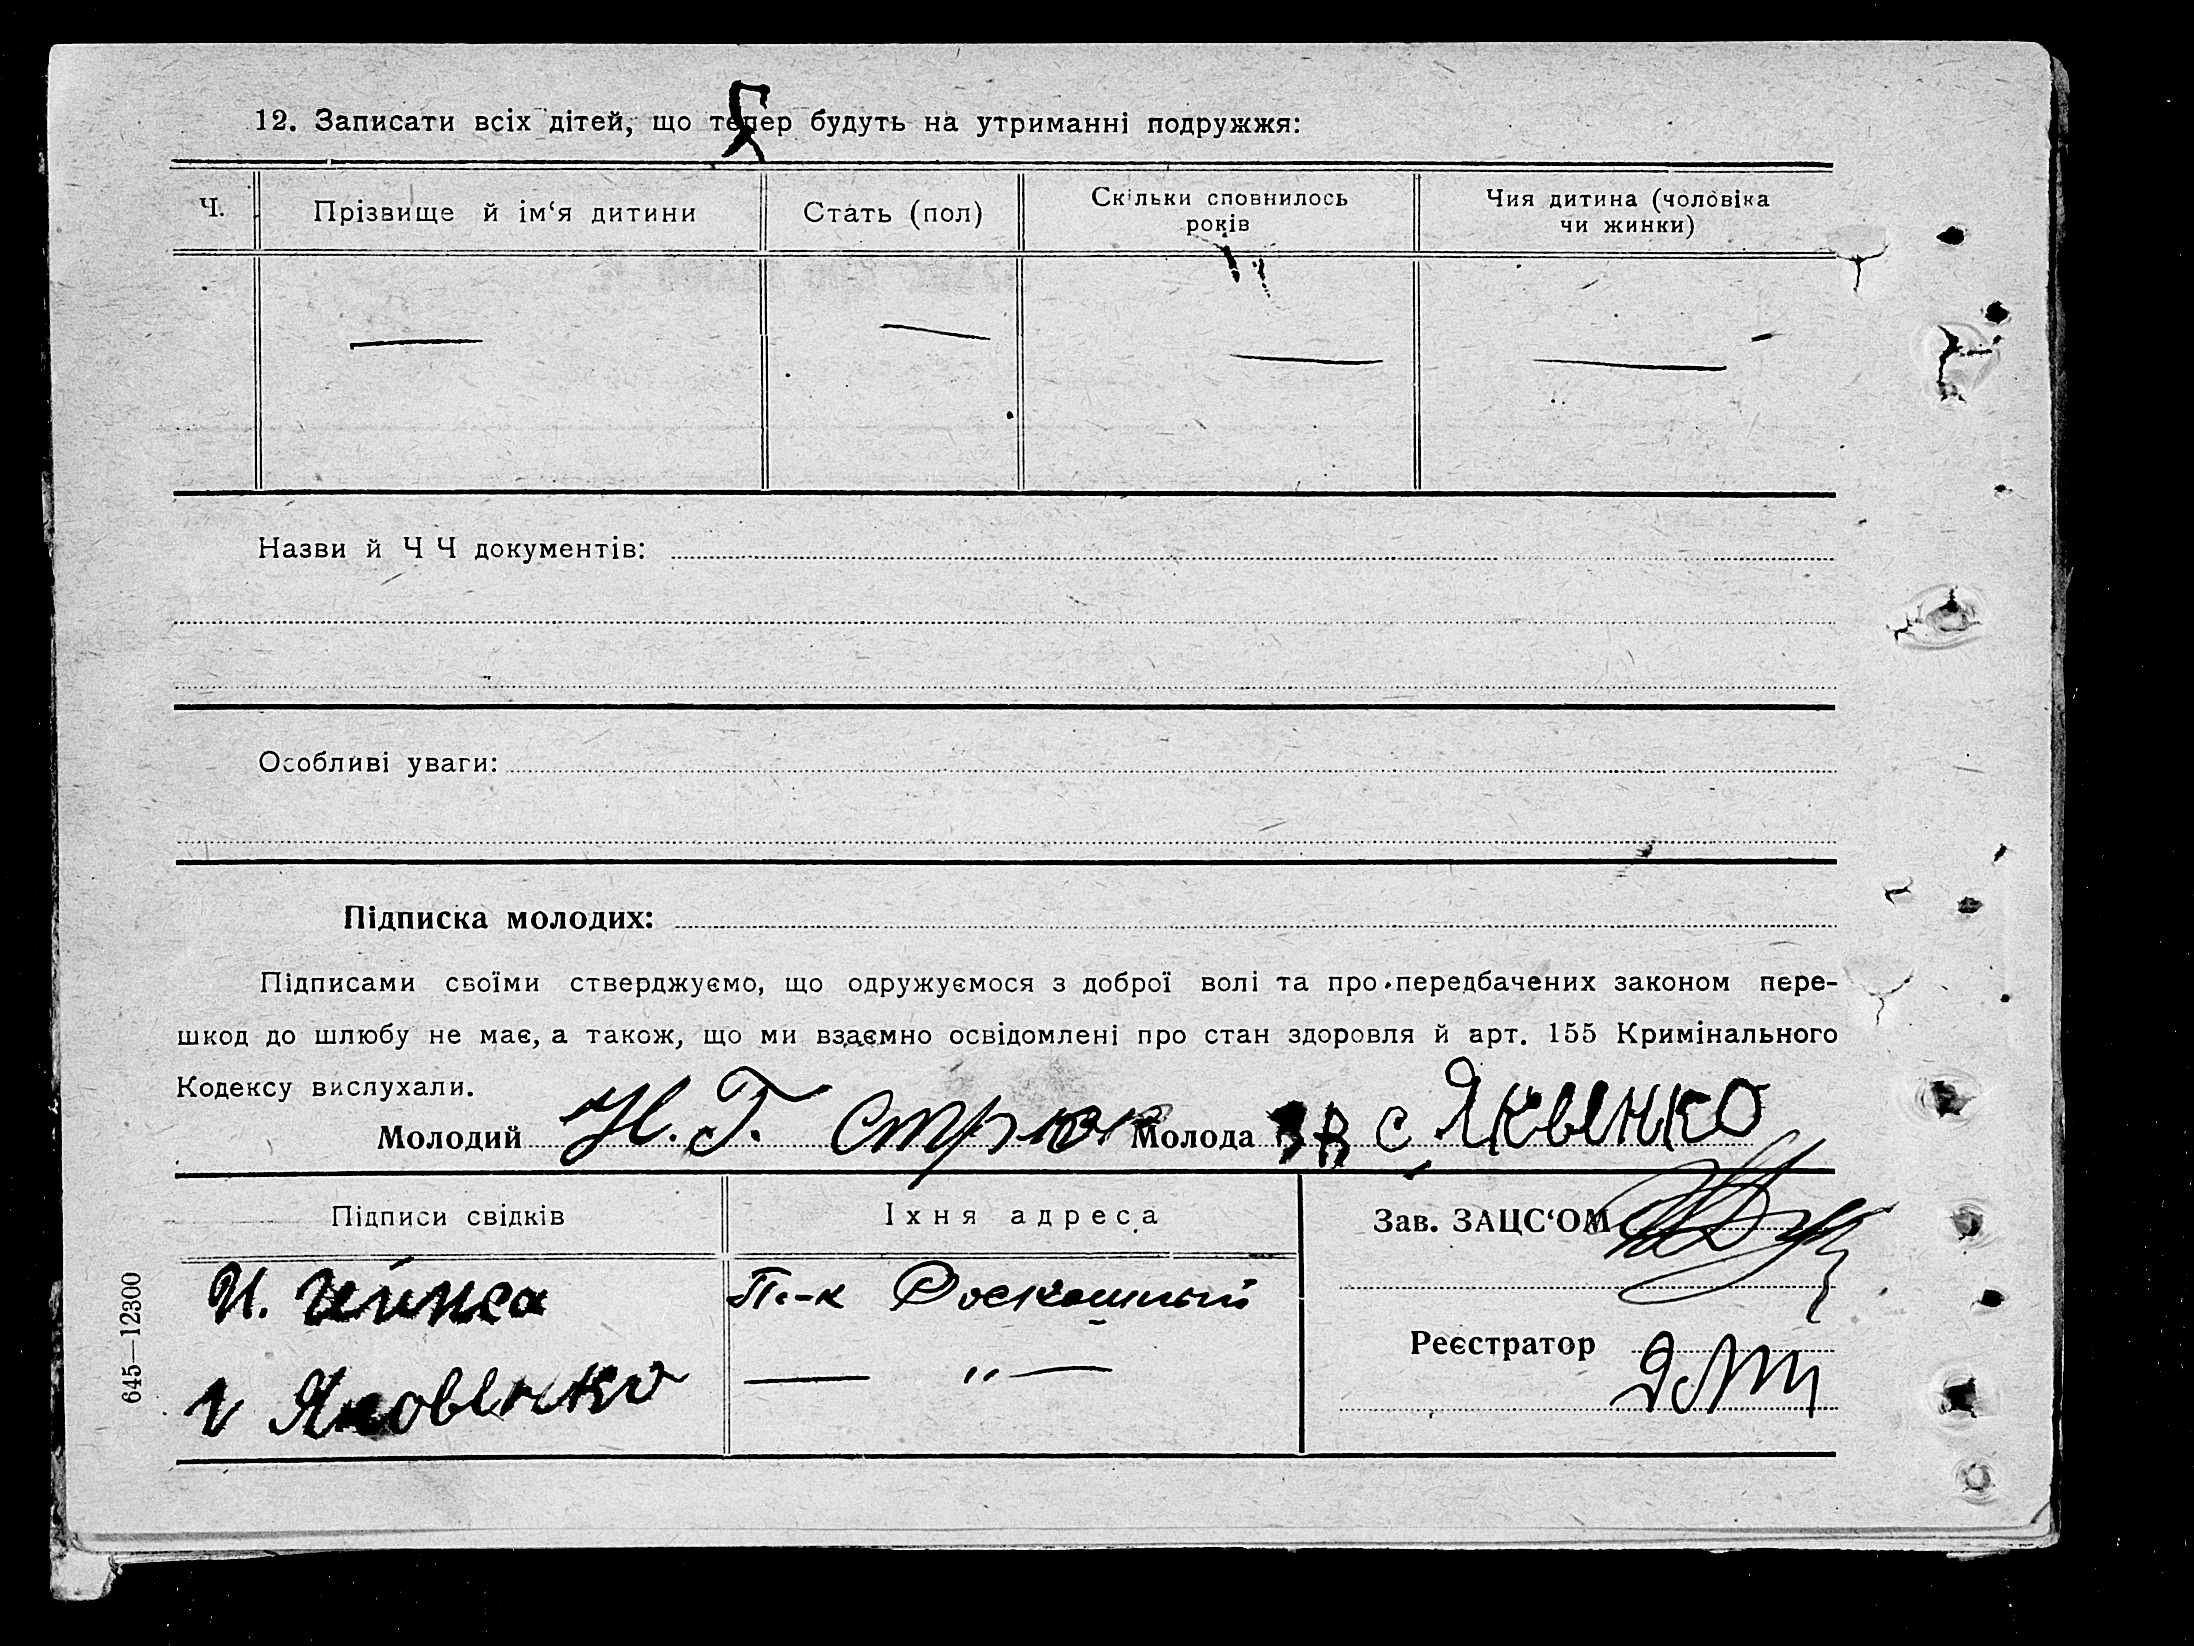 12. Записати всіх дітей, що тепер будуть на утриманні подружжя:
Ч.
Прізвище й ім‘я дитини
Стать (пол)
Скільки сповнилось
років
Чия дитина (чоловіка
чи жинки)
Назви й Ч Ч документів:
Особливі уваги:
Підписка молодих:
Підписами своїми стверджуємо, що одружуємося з доброї волі та про передбачених законом пере-
шкод до шлюбу не має, а також, що ми взаємно освідомлені про стан здоровля й арт. 155 Кримінального
Кодексу вислухали.
Молодий Н. Г. Молода С Яквенко
Підписи свідків
Їхня адреса
Зав. ЗАЦС‘ОМ
И.
П.-к Роскошный
Яковенко
— " —
Реєстратор
645—12300